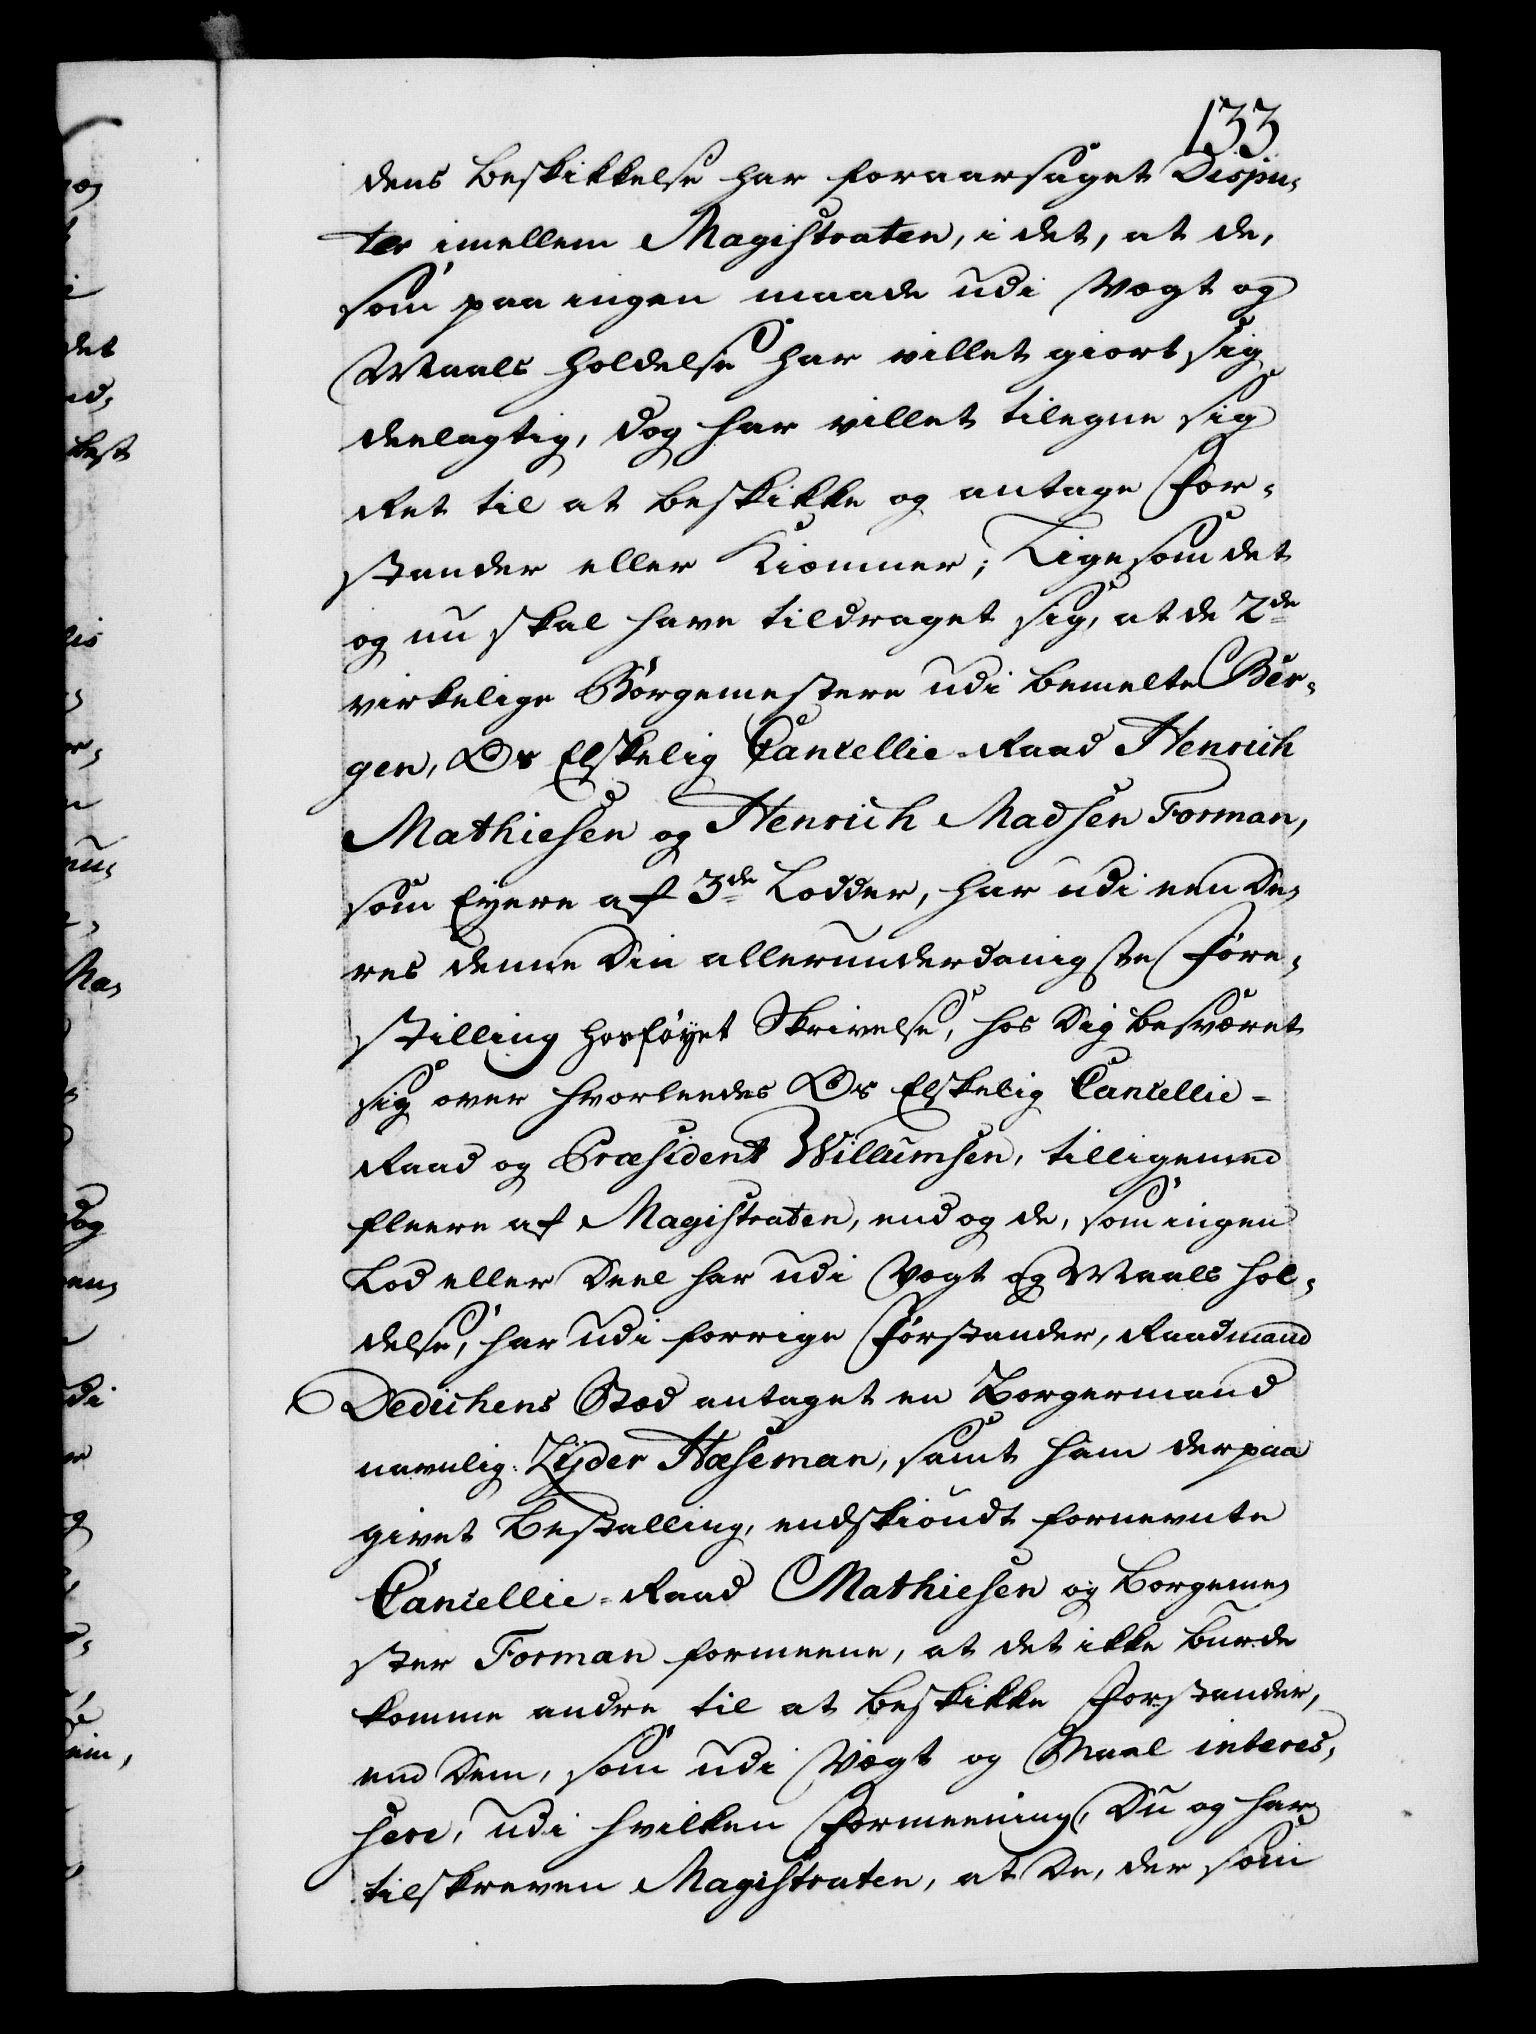 133
dens beskikkelse har foraarsaget Dispu-
ter imellem Magistraten, i det, at de,
som paa ingen maade udi Vægt og
Maals holdelse har villet giort sig
deelagtig, dog har villet tilegne sig
Ret til at beskikke og antage For-
stander eller Kiæmner; Ligesom det
og nu skal have tildraget sig, at de 2de
virkelige Börgemestere udi bemelte Ber-
gen, Os Elskelig Cancellie-Raad Henrich
Mathiesen og Henrich Madsen Forman,
som Eyere af 3de Lodder, har udi een De-
res denne Din allerunderdanigsteFöre-
stilling hosföyet Skrivelse, hos Dig besværet
sig over hvorleedes Os Elskelig Cancellie-
Raad og Præsident Willumsen, tilligemed
fleere af Magistraten, end og de, som ingen
Lod eller Deel har udi Vægt og Maals hol-
delse, har udi forrige Förstander, Raadmand
Dedichens Stæd antaget en Borgermand
navnlig: Zyder Hæseman, samt ham derpaa
givet Bestalling, endskiöndt fornevnte
Cancellie-Raad Mathiesen og Borgeme-
ster Forman formeene, at det ikke burde
komme andre til at beskikke Forstander,
end Dem, som udi Vægt og Maal interes-
sere, udi hvilken Formeening, Du og har
tilskreven Magistraten, at De, der som